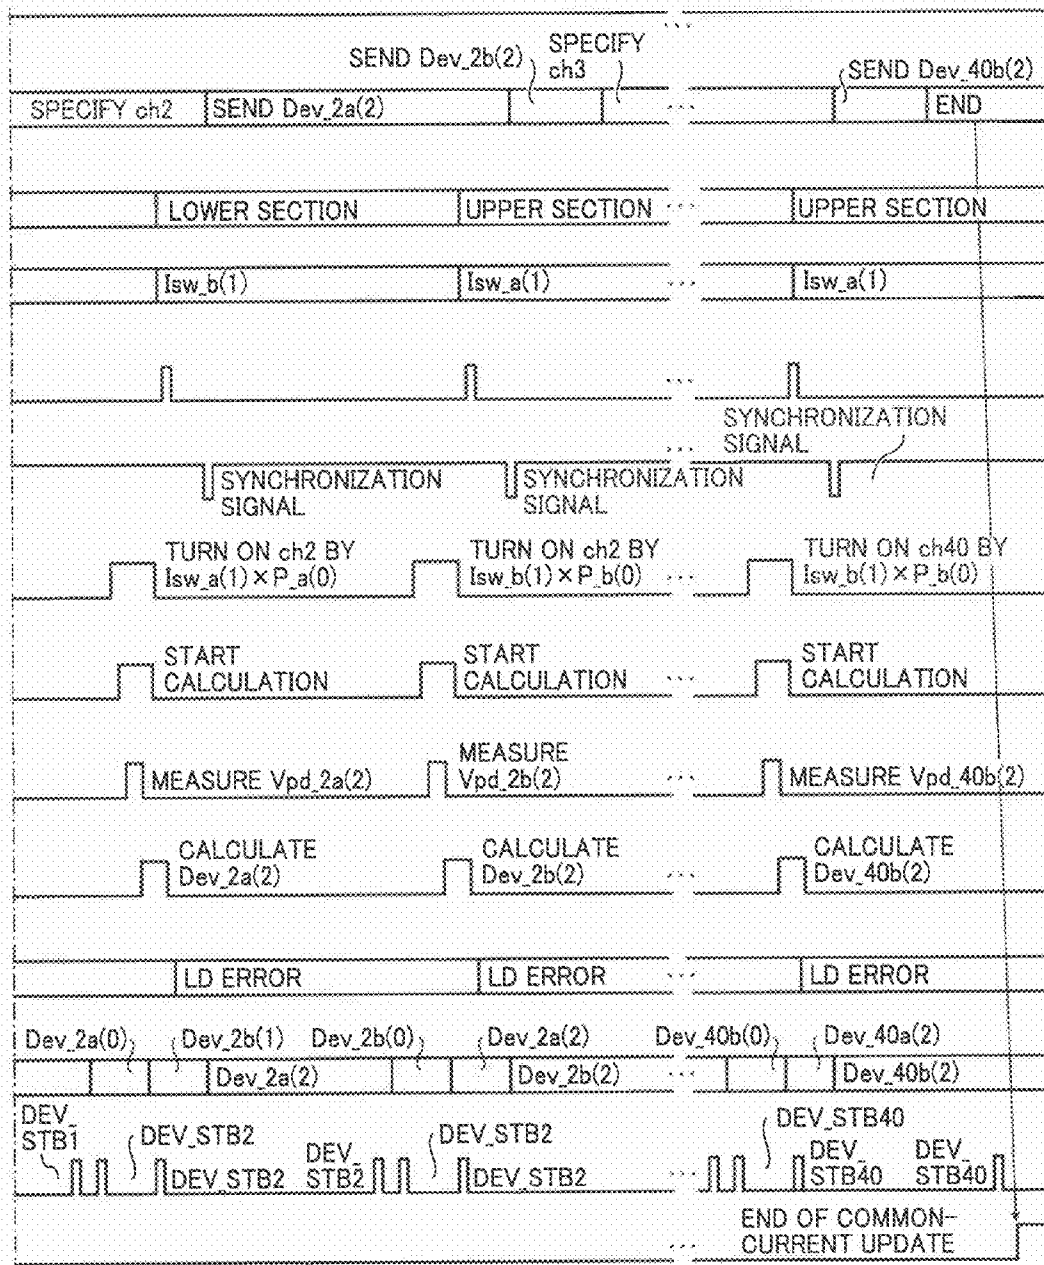 SEND Dev_2b(2)
SPECIFY
ch3
SEND Dev_40b(2)
SPECIFY ch2
SEND Dev_2a(2)
END
LOWER SECTION
UPPER SECTION
UPPER SECTION
Isw_b(1)
Isw_a(1)
Isw_a(1)
SYNCHRONIZATION
SIGNAL
SYNCHRONIZATION
SIGNAL
SYNCHRONIZATION
SIGNAL
TURN ON ch2 BY
Isw_a(1)×P_a(0)
TURN ON ch2 BY
Isw_b(1)×P_b(0)
TURN ON ch40 BY
Isw_b(1)×P_b(0)
START
CALCULATION
START
CALCULATION
START
CALCULATION
MEASURE Vpd_2a(2)
MEASURE
Vpd_2b(2)
MEASURE Vpd_40b(2)
CALCULATE
Dev_2a(2)
CALCULATE
Dev_2b(2)
CALCULATE
Dev_40b(2)
LD ERROR
LD ERROR
LD ERROR
Dev_2a(0)
Dev_2b(1)
Dev_2b(0)
Dev_2a(2)
Dev_40b(0)
Dev_40a(2)
Dev_2a(2)
Dev_2b(2)
Dev_40b(2)
DEV_
STB1
DEV_STB2
DEV_STB2
DEV_
STB2
DEV_STB2
DEV_STB2
DEV_STB40
DEV_
STB40
DEV_
STB40
END OF COMMON-
CURRENT UPDATE